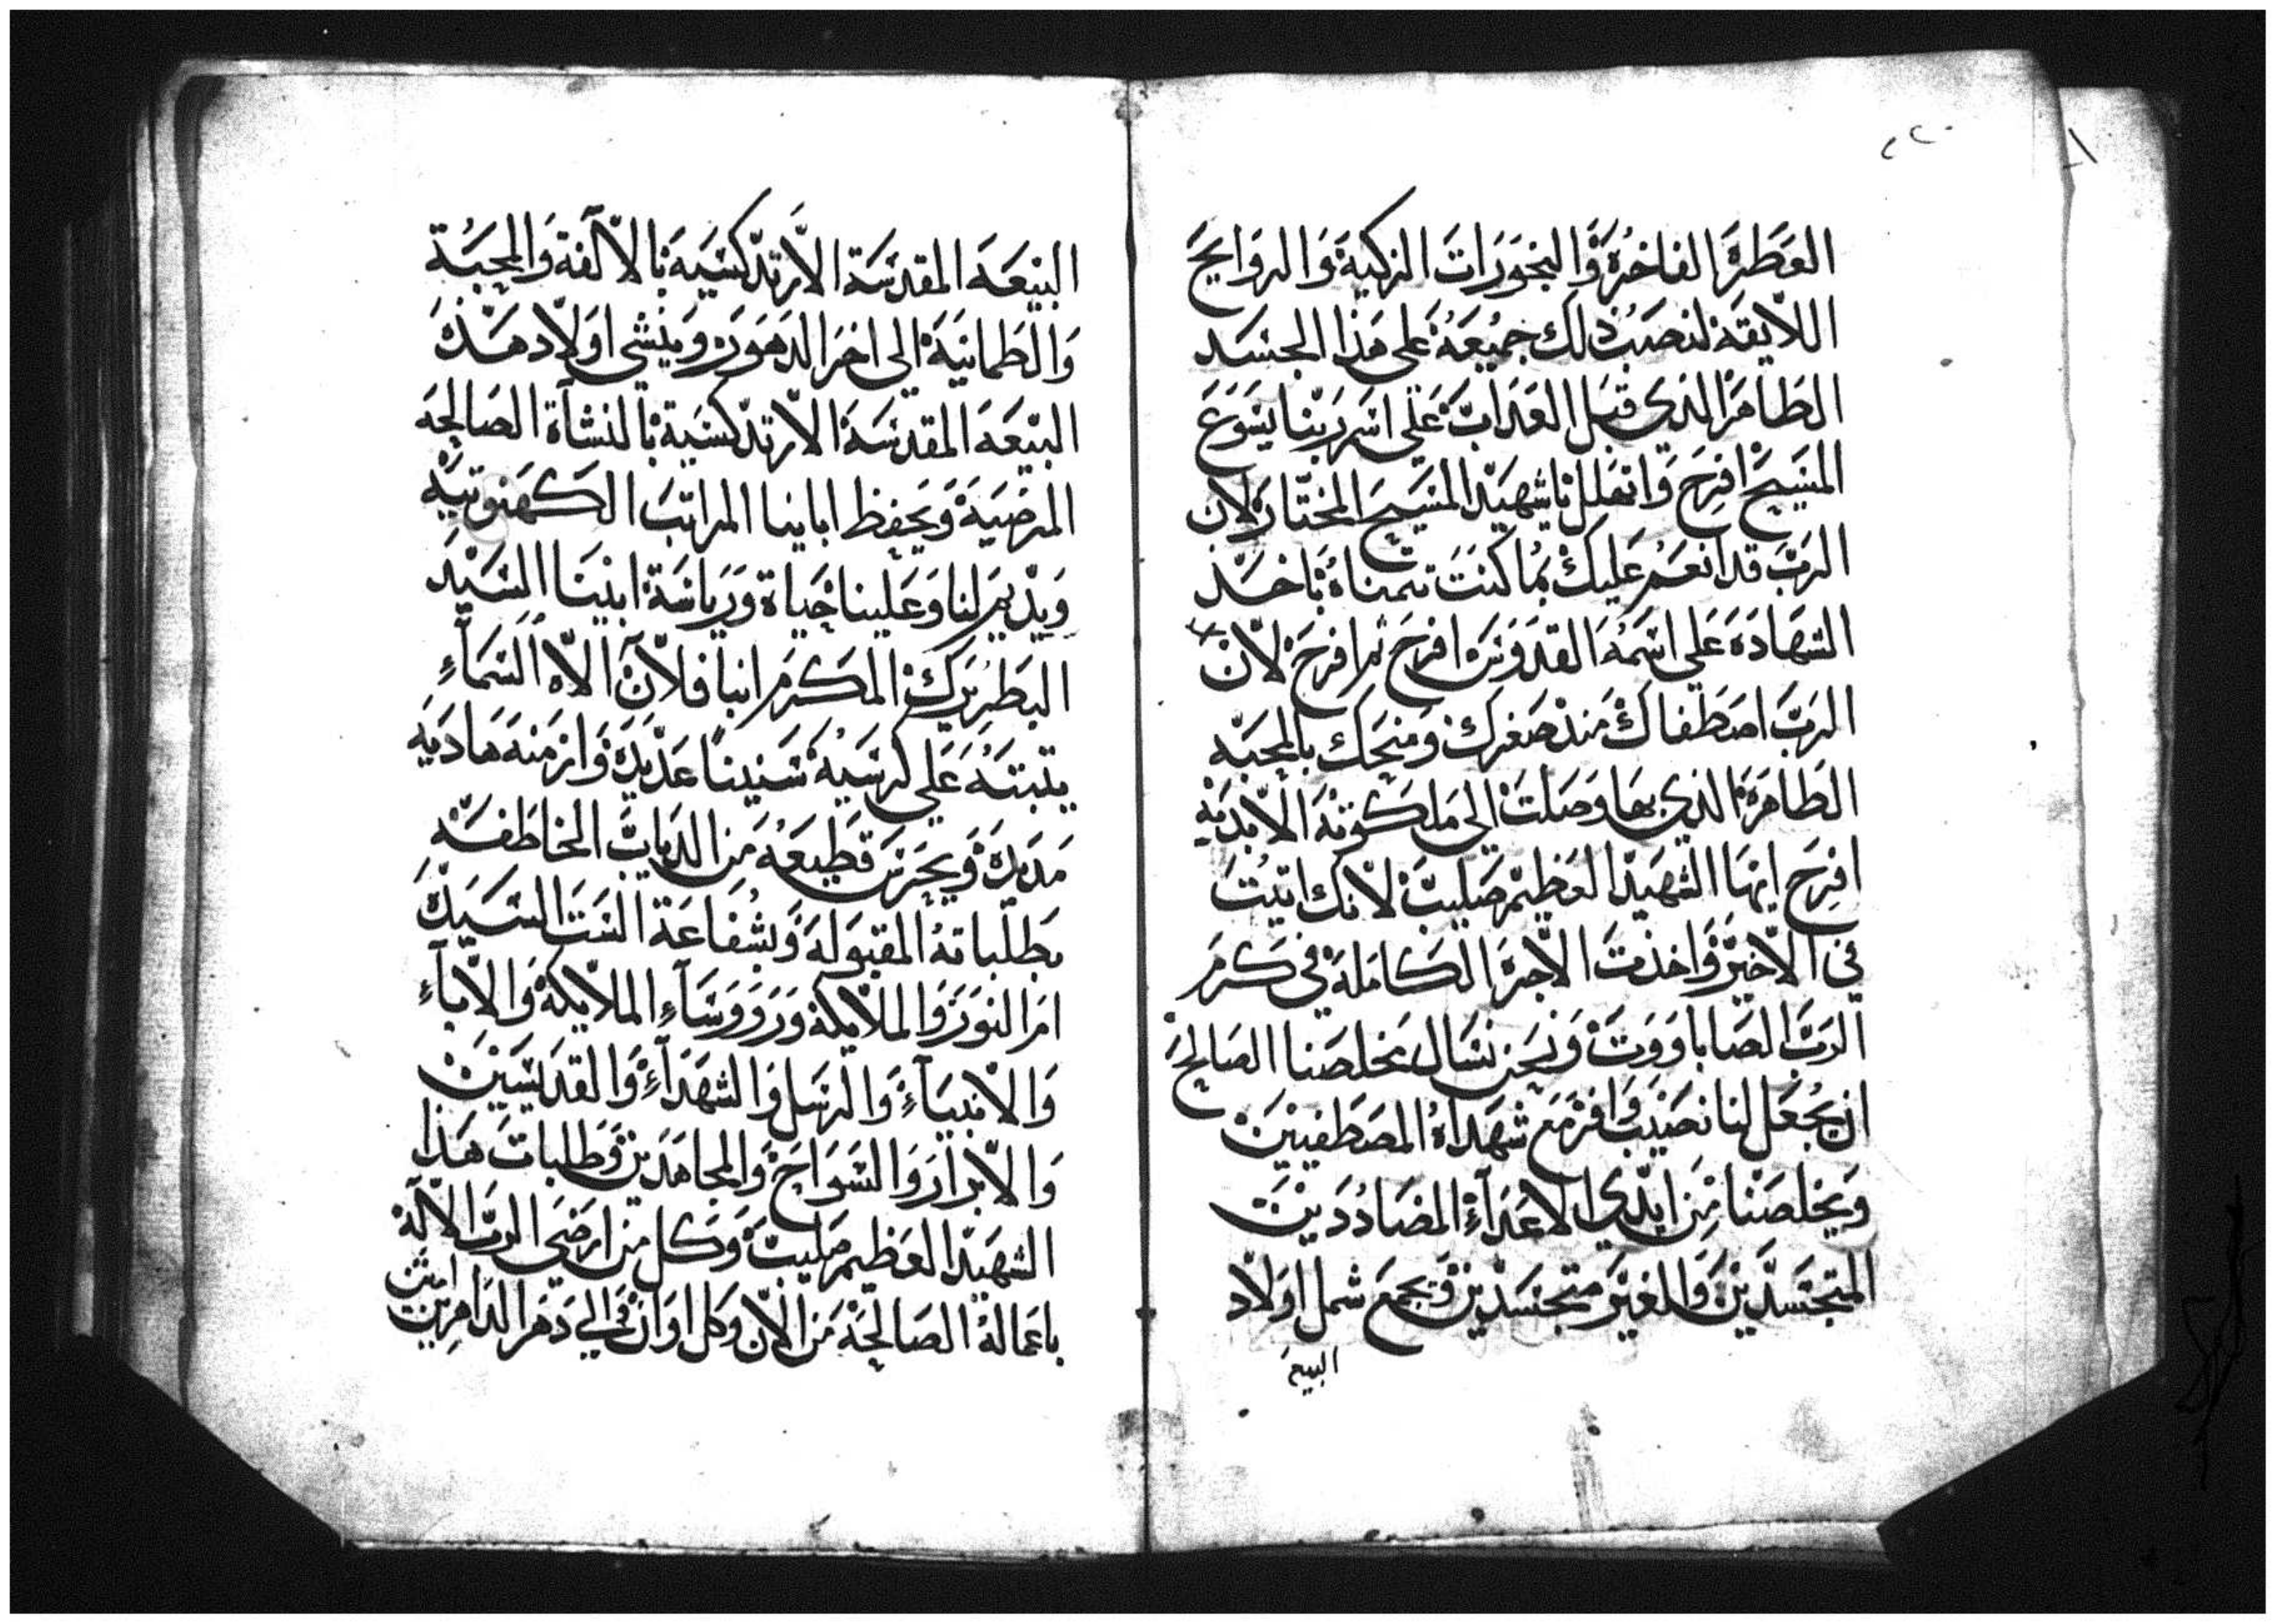 ٢٢٠
العطرة الفاخرة والبخورات الزكية والروايح
اللايقة لنصب ذلك جميعه على هذا الجسد
الطاهر الذي قبل العذاب على اسم ربنا يسوع
المسيح افرح وا تهلل يا شهيد المسيح المختار لان
الرب قد انعم عليك بما كنت تتمناه باخد
الشهادة على اسمه القدوس افرح ثم افرح لان
الرب اصطفاك منذ صغرك ومنحك بالمحبه
الطاهرة الذي بها وصلت الى ملكوته الابديه
افرح ايها الشهيد العظيم صليب لانك اتيت
في الاخير واخذت الاجرة الكاملة في كرم
الرب الصاباووت ونحن نسال مخلصنا الصالح
ان يجعل لنا نصيب وافر مع شهداه المصطفيين
ويخلصنا من ايدي الاعداء المضاددين
المتجسدين والغير متجسدين ويجمع شمل اولاد
البيعه
البيعه المقدسة الارتدكسيه بالالفة والمحبة
والطمانية الى اخر الدهور وينشي اولاد هذه
البيعه المقدسة الارتدكسية بالنشاة الصالحه
المرضية ويحفظ اباينا المراتب الكهنوتيه
ويديم لنا وعلينا حياة ورياسة ابينا السيد
البطريرك المكرم انبا فلان الاه السماء
يتبته على كرسيه سنينا عديدة وازمنه هاديه
مديدة ويحرس قطيعه من الدياب الخاطفه
بطلباته المقبولة وبشفاعة الست السيدة
ام النور والملايكة وروووساء الملايكة والاباء
والانبياء والرسل والشهداء والقديسين
والابرار والسواح والمجاهدين وطلبات هذا
الشهيد العظيم صليب وكل من ارضى الرب الاله
باعماله الصالحة من الان وكل اوان والي دهر الداهرين امين